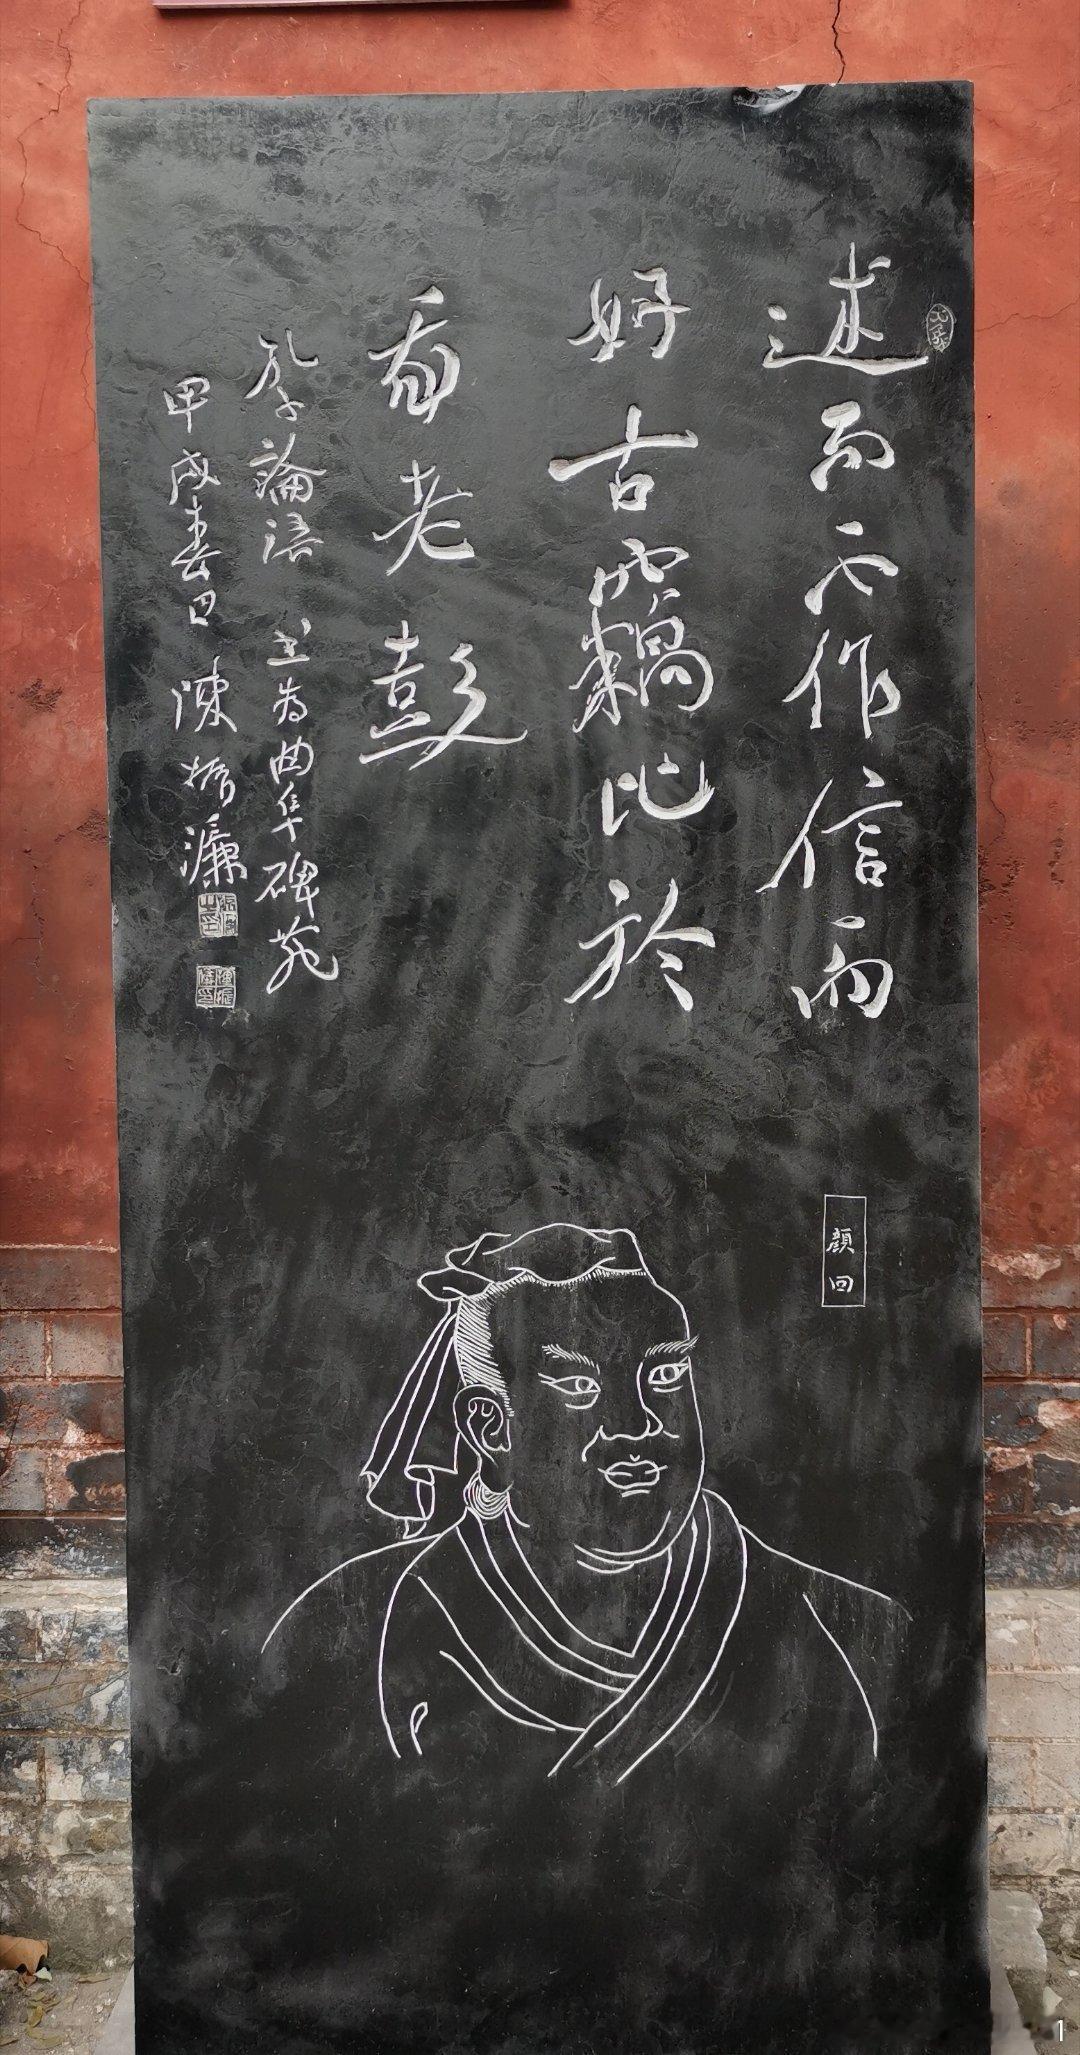 述而不作信而
好古竊比於
我老彭
孔子論語 书為曲阜碑苑
甲戌春日 陳振濂
顏回
1